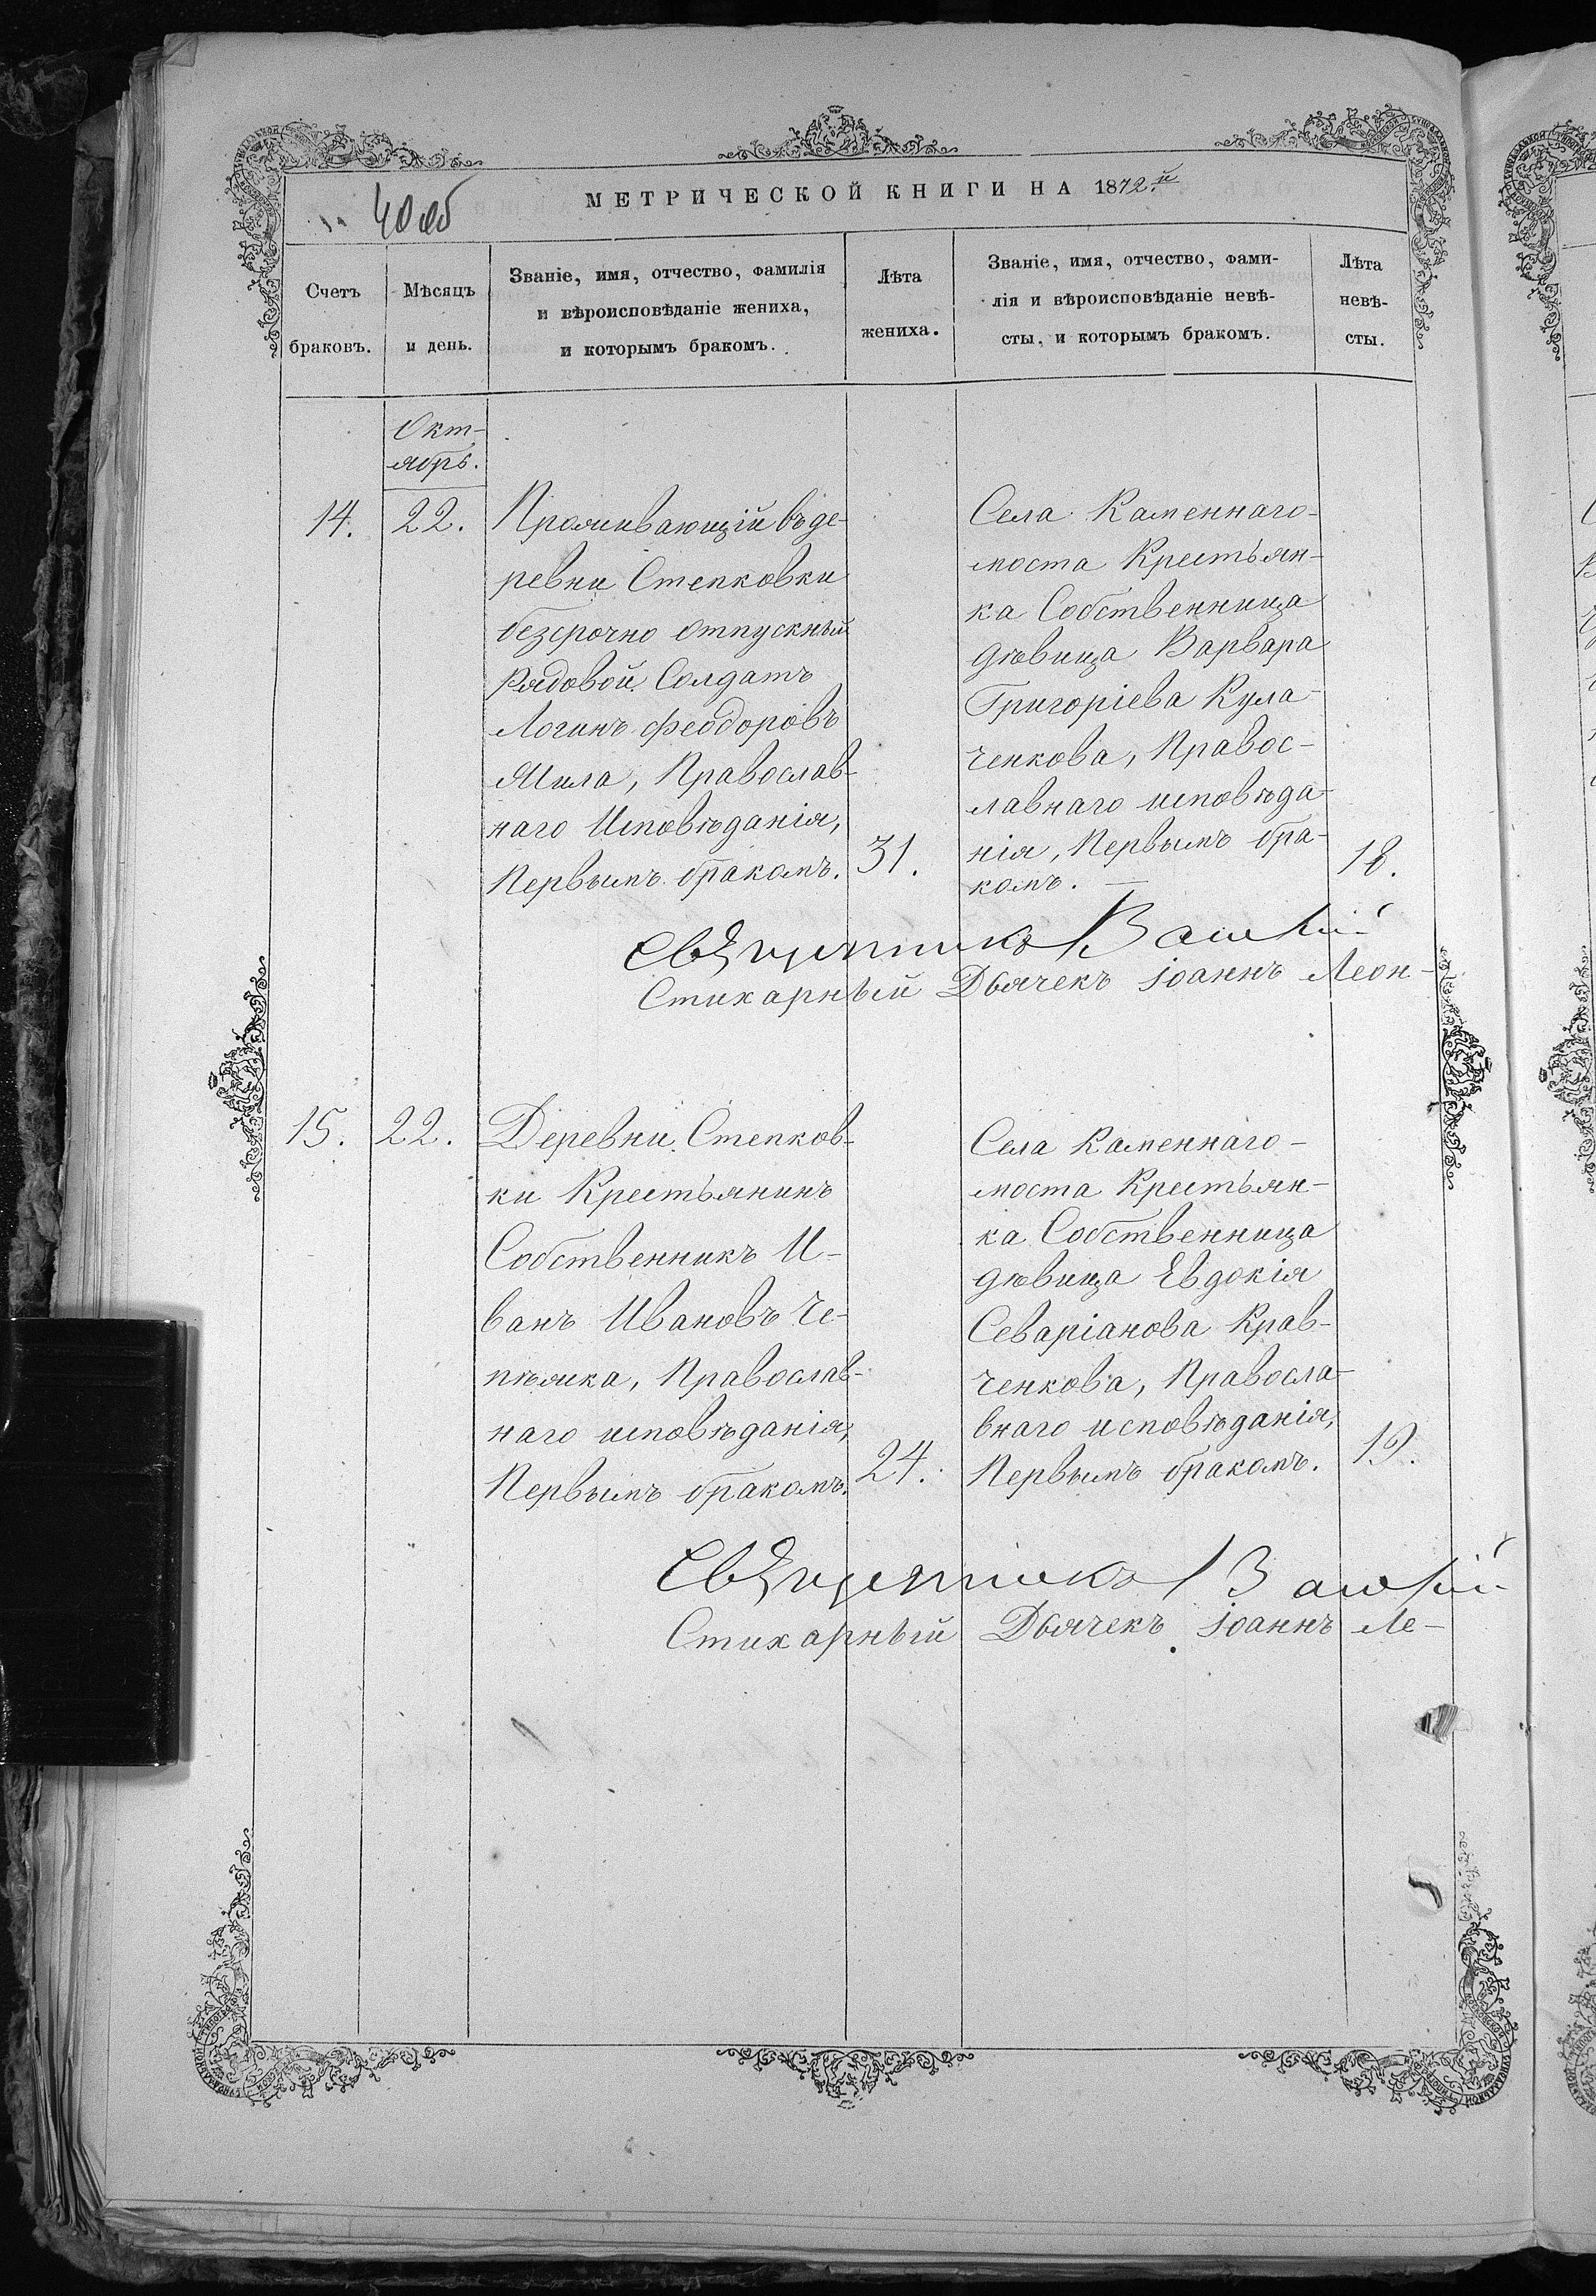 40 об
МЕТРИЧЕСКОЙ КНИГИ НА 1872.й
Счетъ
браковъ.
Мѣсяцъ
и день.
Званіе, имя, отчество, фамилія
и вѣроисповѣданіе жениха,
и которымъ бракомъ.
Лѣта
жениха.
Званіе, имя, отчество, фами-
лія и вѣроисповѣданіе невѣ-
сты, и которымъ бракомъ.
Лѣта
невѣ-
сты.
Окт-
ябрь.
14.
22.
Проживающій въ де-
ревни Степковки
безсрочно отпускный
Рядовой Солдатъ
Логинъ Феодоровъ
Православ-
наго Исповѣданія,
Первымъ бракомъ.
31.
Села Каменнаго-
моста Крестьян-
ка Собственница
дѣвица Варвара
Григоріева Кула-
ченкова, Правос-
лавнаго исповѣда-
нія, Первымъ бра-
комъ. —
18.
Священникъ
Стихарный Дьячекъ Іоаннъ Леон-
15.
22.
Деревни Степков-
ки Крестьянинъ
Собственникъ И-
ванъ Ивановъ Че-
Православ-
наго исповѣданія,
Первымъ бракомъ.
24.
Села Каменнаго-
моста Крестьян-
ка Собственница
дѣвица Евдокія
Севаріанова Крав-
ченкова, Правосла-
внаго исповѣданія,
Первымъ бракомъ.
19.
Священникъ
Стихарный Дьячекъ Іоаннъ Ле-